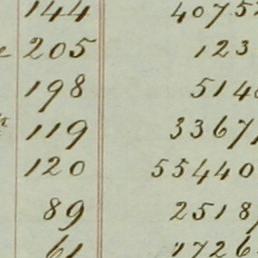 144 4075
205 123
198 514
119 3367
120 55440
89 2518
61 1726